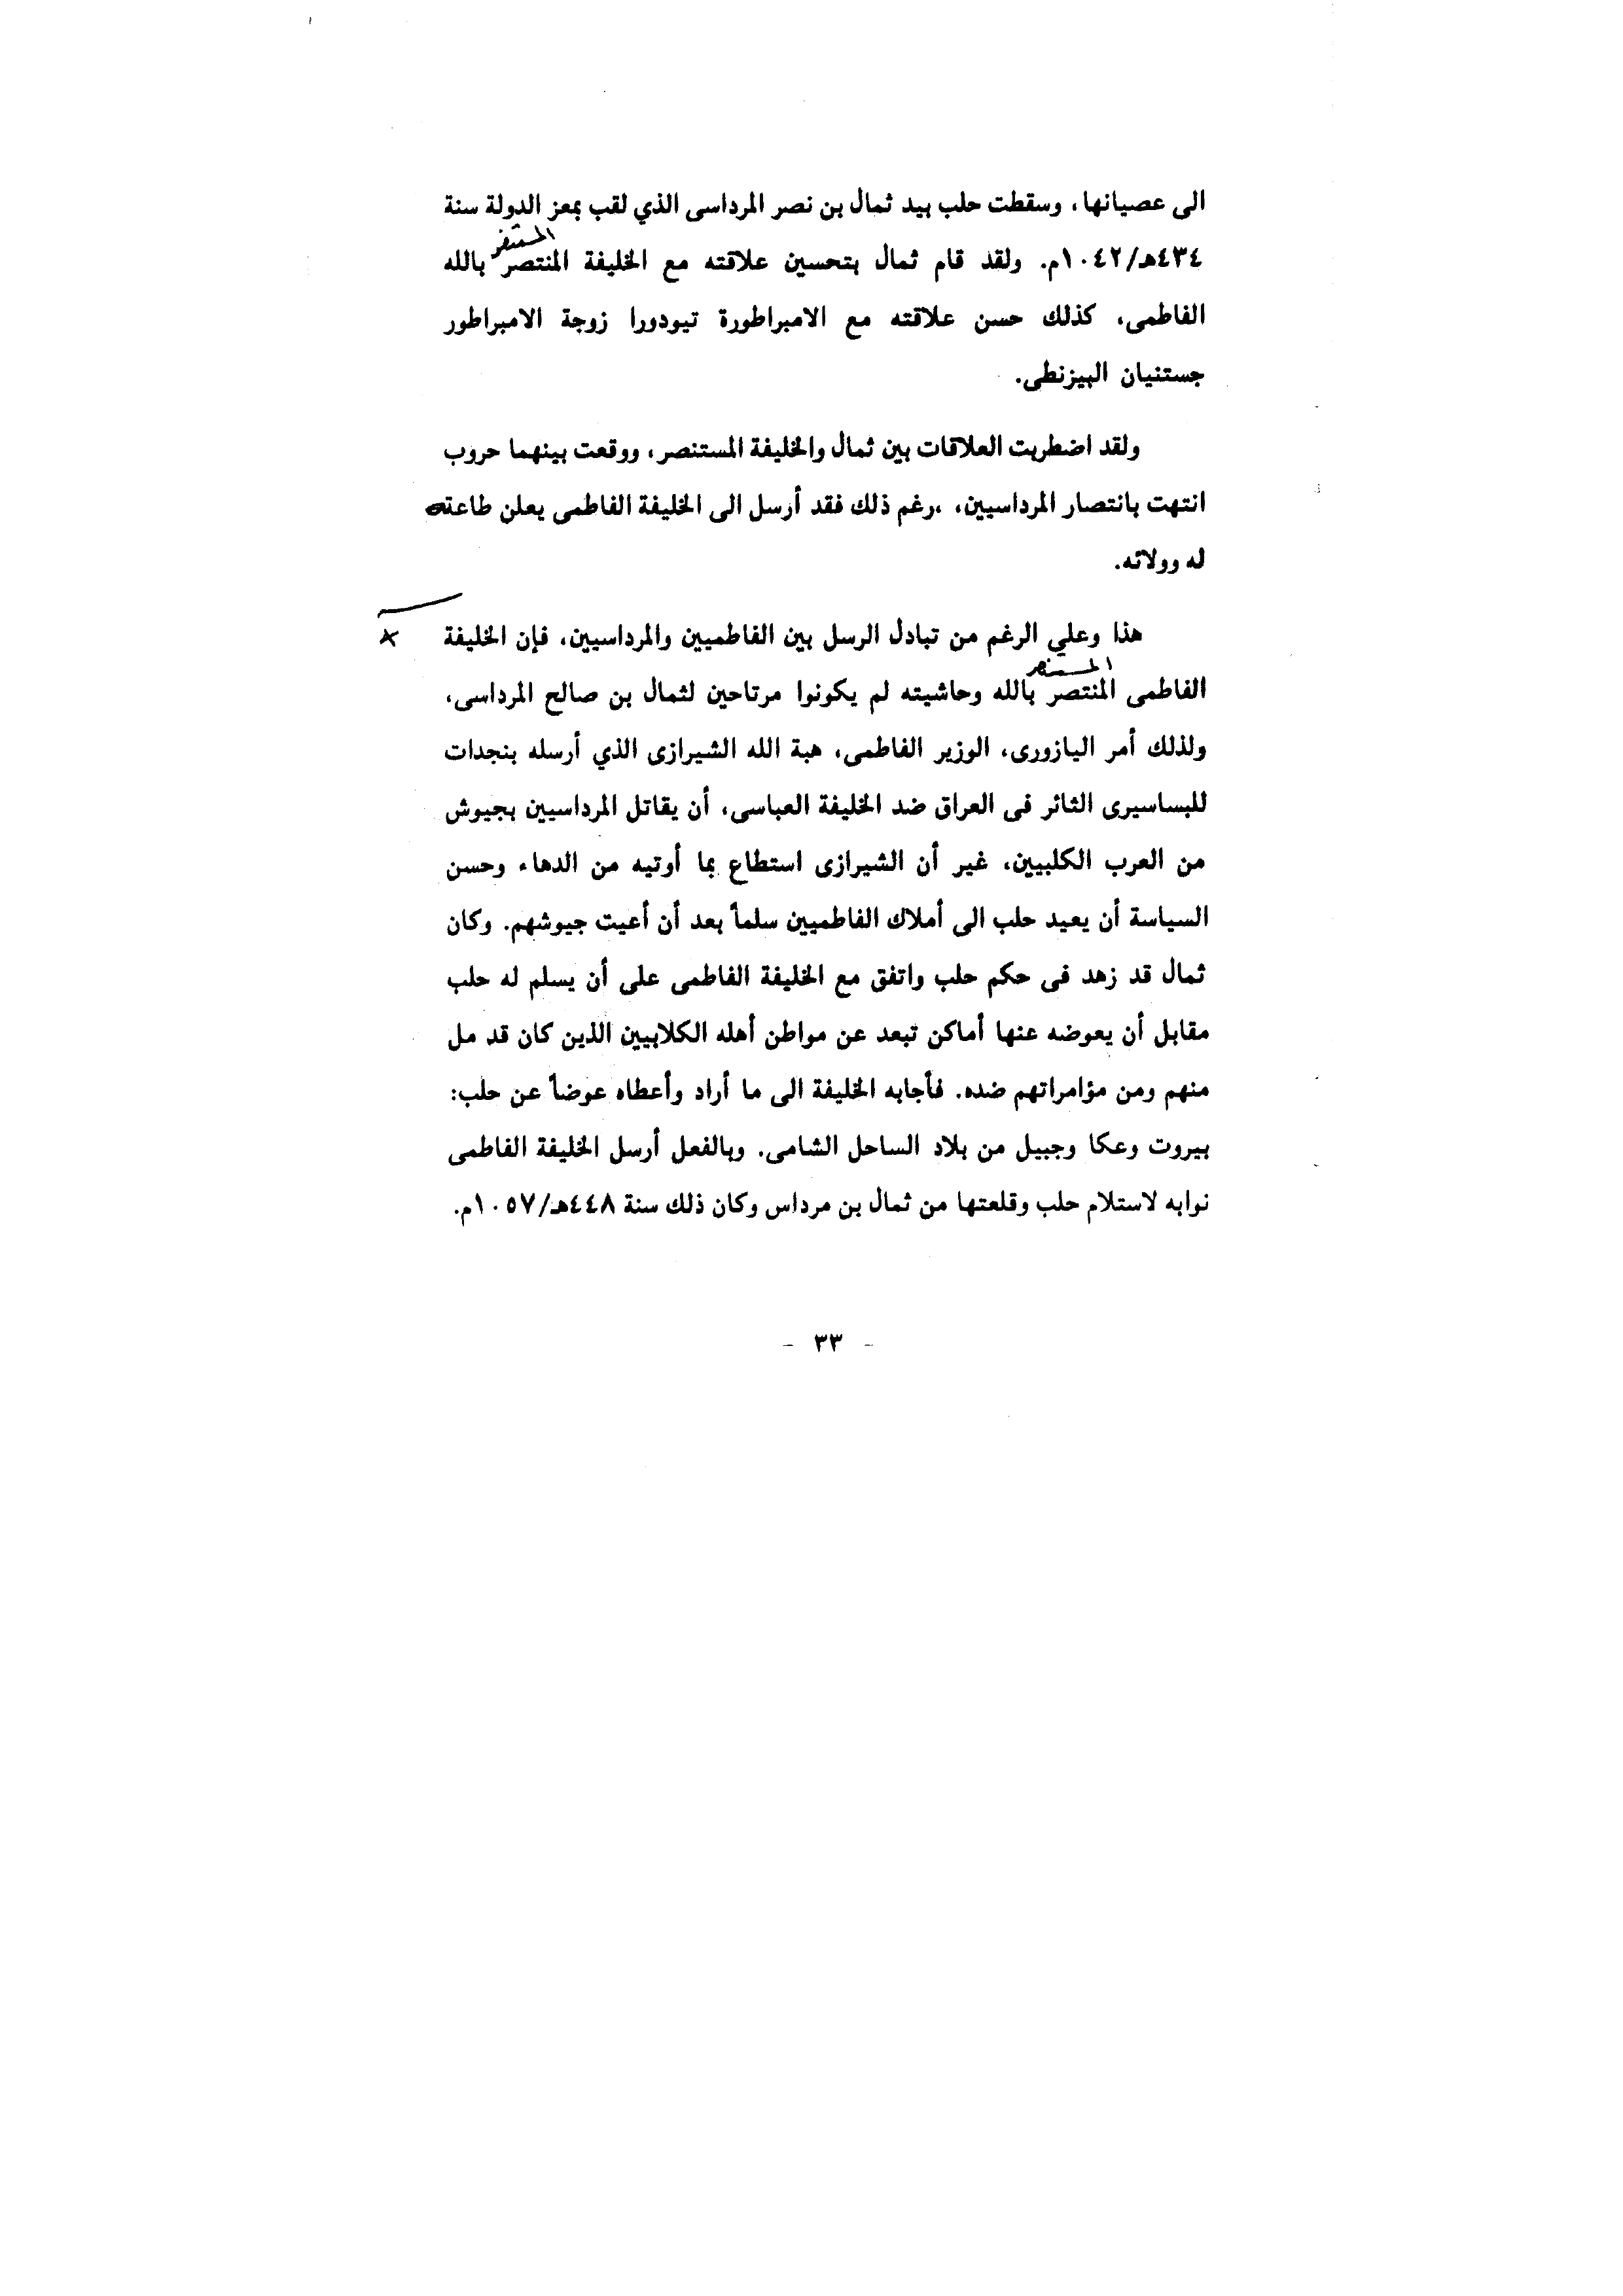 الى عصيانها، وسقطت حلب بيد ثمال بن نصر المرداسى الذي لقب بمعز الدولة سنة
المستنصر
٤٣٤هـ/١٠٤٢م. ولقد قام ثمال بتحسين علاقته مع الخليفة المنتصر بالله
الفاطمى، كذلك حسن علاقته مع الامبراطورة تيودورا زوجة الامبراطور
جستنيان البيزنطى.
ولقد اضطربت العلاقات بين ثمال والخليفة المستنصر، ووقعت بينهما حروب
انتهت بانتصار المرداسيين، ،رغم ذلك فقد أرسل الى الخليفة الفاطمى يعلن طاعته
له وولائه.
هذا وعلي الرغم من تبادل الرسل بين الفاطميين والمرداسيين، فإن الخليفة
المستنصر
الفاطمى المنتصر بالله وحاشيته لم يكونوا مرتاحين لثمال بن صالح المرداسى،
ولذلك أمر اليازورى، الوزير الفاطمى، هبة الله الشيرازى الذي أرسله بنجدات
للبساسيرى الثائر فى العراق ضد الخليفة العباسى، أن يقاتل المرداسيين بجيوش
من العرب الكلبيين، غير أن الشيرازى استطاع بما أوتيه من الدهاء وحسن
السياسة أن يعيد حلب الى أملاك الفاطميين سلماً بعد أن أعيت جيوشهم. وكان
ثمال قد زهد فى حكم حلب واتفق مع الخليفة الفاطمى على أن يسلم له حلب
مقابل أن يعوضه عنها أماكن تبعد عن مواطن أهله الكلابيين الذين كان قد مل
منهم ومن مؤامراتهم ضده. فأجابه الخليفة الى ما أراد وأعطاه عوضاً عن حلب:
بيروت وعكا وجبيل من بلاد الساحل الشامى. وبالفعل أرسل الخليفة الفاطمى
نوابه لاستلام حلب وقلعتها من ثمال بن مرداس وكان ذلك سنة ٤٤٨هـ/١٠٥٧م.
- ٣٣ -